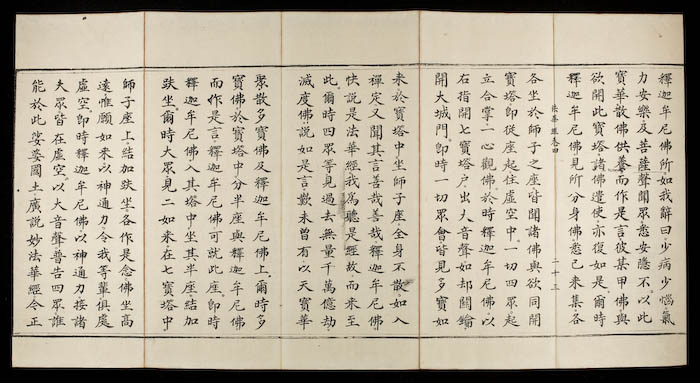 釋迦牟尼佛所如我辭曰少病少惱氣
力安樂及菩薩聲聞眾悉安隱不以此
寶華散佛供養而作是言彼某甲佛與
欲開此寶塔諸佛遣使亦復如是爾時
釋迦牟尼佛見所分身佛悉已來集各
法華經卷四 二十三
各坐於師子之座皆聞諸佛與欲同開
寶塔即從座起住虛空中一切四眾起
立合掌一心觀佛於時釋迦牟尼佛以
右指開七寶塔戶出大音聲如却關鑰
開大城門即時一切眾會皆見多寶如
來於寶塔中坐師子座全身不散如入
禪定又聞其言善哉善哉釋迦牟尼佛
快說是法華經我為聽是經故而來至
此爾時四眾等見過去無量千萬億劫
滅度佛說如是言歎未曾有以天寶華
聚散多寶佛及釋迦牟尼佛上爾時多
寶佛於寶塔中分半座與釋迦牟尼佛
而作是言釋迦牟尼佛可就此座即時
釋迦牟尼佛入其塔中坐其半座結加
趺坐爾時大眾見二如來在七寶塔中
師子座上結加趺坐各作是念佛坐高
遠惟願如來以神通力令我等輩俱處
虛空即時釋迦牟尼佛以神通力接諸
大眾皆在虛空以大音聲普告四眾誰
能於此娑婆國土廣說妙法華經今正